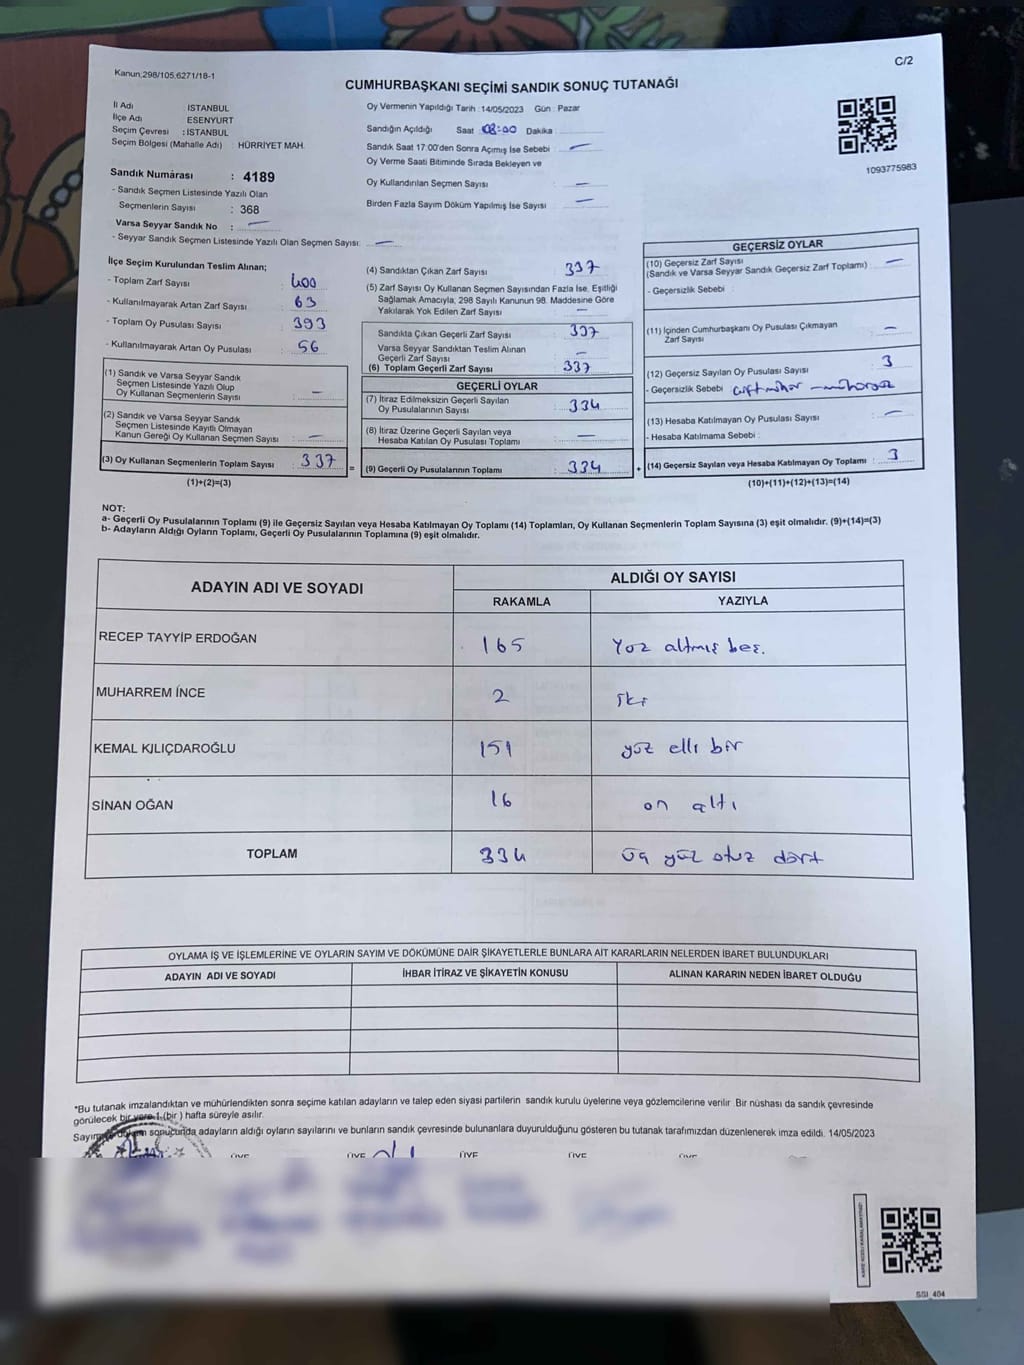 Kanun;298/105,6271/18-1
C/2
CUMHURBAŞKANI SEÇİMİ SANDIK SONUÇ TUTANAĞI
İl Adı : İSTANBUL
İlçe Adı : ESENYURT
Seçim Çevresi : İSTANBUL
Seçim Bölgesi (Mahalle Adı) : HÜRRİYET MAH.
Sandık Numarası : 4189
- Sandık Seçmen Listesinde Yazılı Olan
Seçmenlerin Sayısı : 368
Varsa Seyyar Sandık No : —
- Seyyar Sandık Seçmen Listesinde Yazılı Olan Seçmen Sayısı: —
Oy Vermenin Yapıldığı Tarih : 14/05/2023 Gün : Pazar
Sandığın Açıldığı Saat 08:00 Dakika :
Sandık Saat 17:00'den Sonra Açımış İse Sebebi : —
Oy Verme Saati Bitiminde Sırada Bekleyen ve
Oy Kullandırılan Seçmen Sayısı : —
Birden Fazla Sayım Döküm Yapılmış İse Sayısı : —
1093775983
İlçe Seçim Kurulundan Teslim Alınan;
- Toplam Zarf Sayısı : 400
- Kullanılmayarak Artan Zarf Sayısı : 63
- Toplam Oy Pusulası Sayısı : 393
- Kullanılmayarak Artan Oy Pusulası : 56
(1) Sandık ve Varsa Seyyar Sandık
Seçmen Listesinde Yazılı Olup
Oy Kullanan Seçmenlerin Sayısı : —
(2) Sandık ve Varsa Seyyar Sandık
Seçmen Listesinde Kayıtlı Olmayan
Kanun Gereği Oy Kullanan Seçmen Sayısı : —
(3) Oy Kullanan Seçmenlerin Toplam Sayısı : 337
(1)+(2)=(3)
=
(4) Sandıktan Çıkan Zarf Sayısı : 337
(5) Zarf Sayısı Oy Kullanan Seçmen Sayısından Fazla İse, Eşitliği
Sağlamak Amacıyla, 298 Sayılı Kanunun 98. Maddesine Göre
Yakılarak Yok Edilen Zarf Sayısı : —
Sandıkta Çıkan Geçerli Zarf Sayısı : 337
Varsa Seyyar Sandıktan Teslim Alınan
Geçerli Zarf Sayısı : —
(6) Toplam Geçerli Zarf Sayısı : 337
GEÇERLİ OYLAR
(7) İtiraz Edilmeksizin Geçerli Sayılan
Oy Pusulalarının Sayısı : 334
(8) İtiraz Üzerine Geçerli Sayılan veya
Hesaba Katılan Oy Pusulası Toplamı : —
(9) Geçerli Oy Pusulalarının Toplamı : 334
+
GEÇERSİZ OYLAR
(10) Geçersiz Zarf Sayısı : —
(Sandık ve Varsa Seyyar Sandık Geçersiz Zarf Toplamı)
- Geçersizlik Sebebi :
(11) İçinden Cumhurbaşkanı Oy Pusulası Çıkmayan
Zarf Sayısı : —
(12) Geçersiz Sayılan Oy Pusulası Sayısı : 3
- Geçersizlik Sebebi : çift mühür – mühürsüz
(13) Hesaba Katılmayan Oy Pusulası Sayısı : —
- Hesaba Katılmama Sebebi :
(14) Geçersiz Sayılan veya Hesaba Katılmayan Oy Toplamı : 3
(10)+(11)+(12)+(13)=(14)
NOT:
a- Geçerli Oy Pusulalarının Toplamı (9) ile Geçersiz Sayılan veya Hesaba Katılmayan Oy Toplamı (14) Toplamları, Oy Kullanan Seçmenlerin Toplam Sayısına (3) eşit olmalıdır. (9)+(14)=(3)
b- Adayların Aldığı Oyların Toplamı, Geçerli Oy Pusulalarının Toplamına (9) eşit olmalıdır.
ADAYIN ADI VE SOYADI
ALDIĞI OY SAYISI
RAKAMLA YAZIYLA
RECEP TAYYİP ERDOĞAN 165 Yüz altmış beş.
MUHARREM İNCE 2 iki
KEMAL KILIÇDAROĞLU 151 yüz elli bir
SİNAN OĞAN 16 on altı
TOPLAM 334 üç yüz otuz dört
OYLAMA İŞ VE İŞLEMLERİNE VE OYLARIN SAYIM VE DÖKÜMÜNE DAİR ŞİKAYETLERLE BUNLARA AİT KARARLARIN NELERDEN İBARET BULUNDUKLARI
ADAYIN ADI VE SOYADI İHBAR İTİRAZ VE ŞİKAYETİN KONUSU ALINAN KARARIN NEDEN İBARET OLDUĞU
*Bu tutanak imzalandıktan ve mühürlendikten sonra seçime katılan adayların ve talep eden siyasi partilerin sandık kurulu üyelerine veya gözlemcilerine verilir. Bir nüshası da sandık çevresinde
görülecek bir yere 1 (bir ) hafta süreyle asılır.
Sayım ve döküm sonucunda adayların aldığı oyların sayılarını ve bunların sandık çevresinde bulunanlara duyurulduğunu gösteren bu tutanak tarafımızdan düzenlenerek imza edildi. 14/05/2023
ÜYE ÜYE ÜYE ÜYE ÜYE
SSI_404